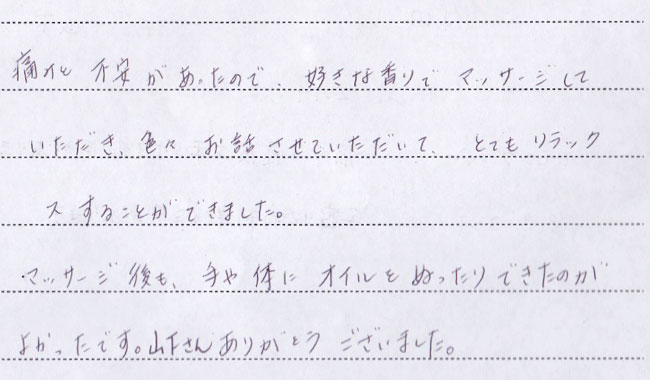 痛みと 不安があったので、好きな香りで マッサージして
いただき、色々 お話させていただいて、とてもリラック
スすることができました。
マッサージ後も、手や体に オイルをぬったりできたのが
よかったです。山下さんありがとう ございました。